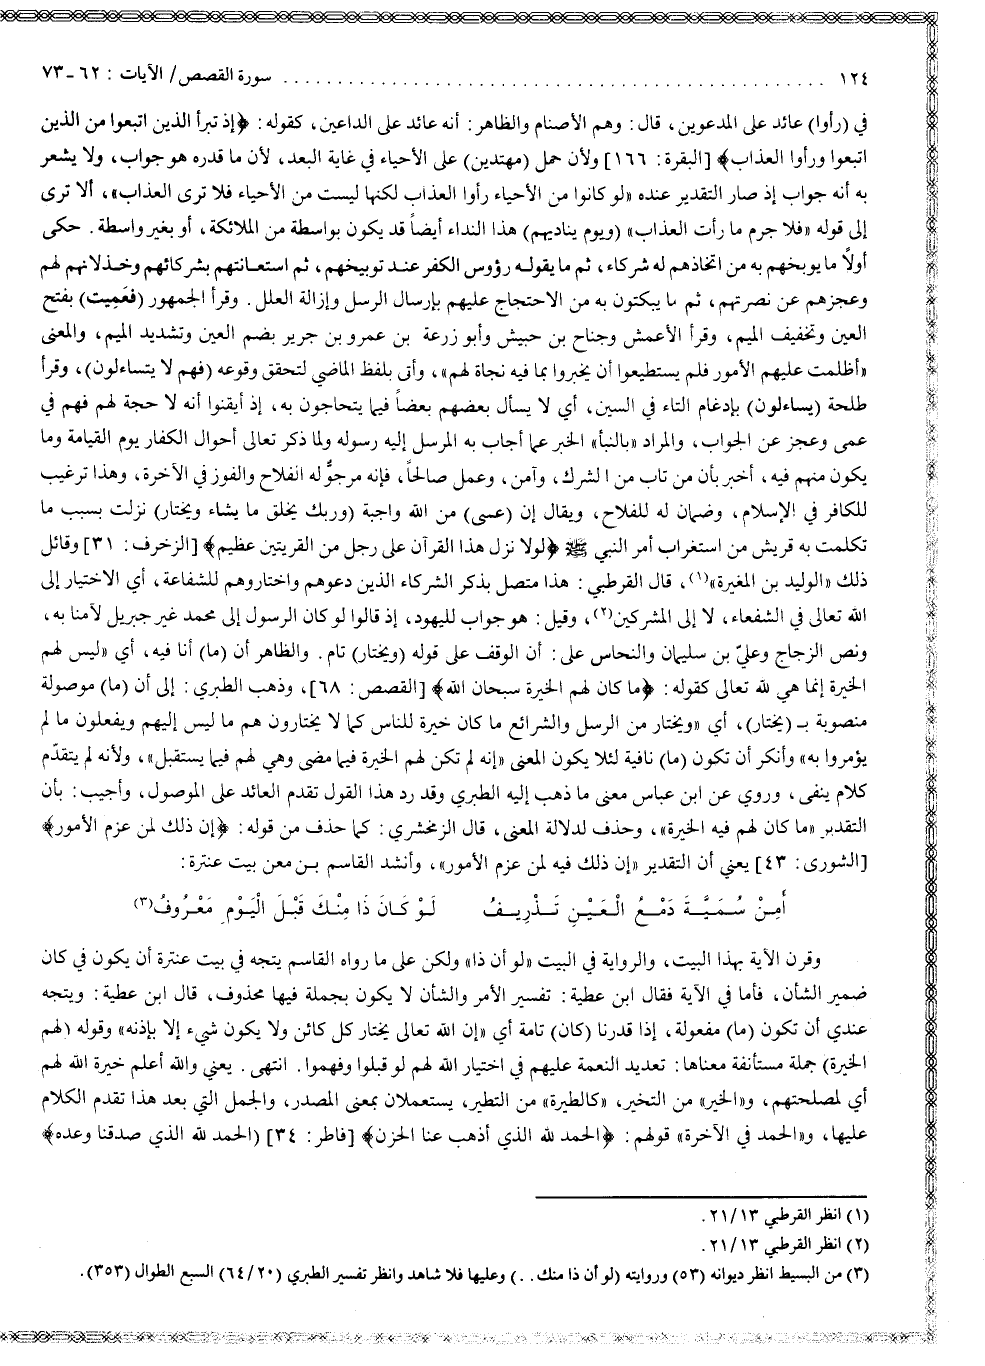 ١٢٤ ........................................ سورة القصص/ الآيات : ٦٢ ـ ٧٣
في (رأوا) عائد على المدعوين، قال: وهم الأصنام والظاهر: أنه عائد على الداعين، كقوله: ﴿إذ تبرأ الذين اتبعوا من الذين
اتبعوا ورأوا العذاب﴾ [البقرة: ١٦٦] ولأن حمل (مهتدين) على الأحياء في غاية البعد، لأن ما قدره هو جواب، ولا يشعر
به أنه جواب إذ صار التقدير عنده «لو كانوا من الأحياء رأوا العذاب لكنها ليست من الأحياء فلا ترى العذاب»، ألا ترى
إلى قوله «فلا جرم ما رأت العذاب» (ويوم يناديهم) هذا النداء أيضاً قد يكون بواسطة من الملائكة، أو بغير واسطة. حكى
أولاً ما يوبخهم به من اتخاذهم له شركاء، ثم ما يقوله رؤوس الكفر عند توبيخهم، ثم استعانتهم بشركائهم وخذلانهم لهم
وعجزهم عن نصرتهم، ثم ما يبكتون به من الاحتجاج عليهم بإرسال الرسل وإزالة العلل. وقرأ الجمهور (فعَمِيت) بفتح
العين وتخفيف الميم، وقرأ الأعمش وجناح بن حبيش وأبو زرعة بن عمرو بن جرير بضم العين وتشديد الميم، والمعنى
«أظلمت عليهم الأمور فلم يستطيعوا أن يخبروا بما فيه نجاة لهم»، وأتى بلفظ الماضي لتحقق وقوعه (فهم لا يتساءلون)، وقرأ
طلحة (يساءلون) بإدغام التاء في السين، أي لا يسأل بعضهم بعضاً فيما يتحاجون به، إذ أيقنوا أنه لا حجة لهم فهم في
عمى وعجز عن الجواب، والمراد «بالنبأ» الخبر عما أجاب به المرسل إليه رسوله ولما ذكر تعالى أحوال الكفار يوم القيامة وما
يكون منهم فيه، أخبر بأن من تاب من الشرك، وآمن، وعمل صالحاً، فإنه مرجوٌّ له الفلاح والفوز في الآخرة، وهذا ترغيب
للكافر في الإسلام، وضمان له للفلاح، ويقال إن (عسى) من الله واجبة (وربك يخلق ما يشاء ويختار) نزلت بسبب ما
تكلمت به قريش من استغراب أمر النبي ﷺ ﴿لولا نزل هذا القرآن على رجل من القريتين عظيم﴾ [الزخرف: ٣١] وقائل
ذلك «الوليد بن المغيرة»(١)، قال القرطبي: هذا متصل بذكر الشركاء الذين دعوهم واختاروهم للشفاعة، أي الاختيار إلى
الله تعالى في الشفعاء، لا إلى المشركين(٢)، وقيل: هو جواب لليهود، إذ قالوا لو كان الرسول إلى محمد غير جبريل لآمنا به،
ونص الزجاج وعليّ بن سليمان والنحاس على: أن الوقف على قوله (ويختار) تام. والظاهر أن (ما) أنا فيه، أي «ليس لهم
الخيرة إنما هي لله تعالى كقوله: ﴿ما كان لهم الخيرة سبحان الله﴾ [القصص: ٦٨]، وذهب الطبري: إلى أن (ما) موصولة
منصوبة بـ (يختار)، أي «ويختار من الرسل والشرائع ما كان خيرة للناس كما لا يختارون هم ما ليس إليهم ويفعلون ما لم
يؤمروا به» وأنكر أن تكون (ما) نافية لئلا يكون المعنى «إنه لم تكن لهم الخيرة فيما مضى وهي لهم فيما يستقبل»، ولأنه لم يتقدّم
كلام ينفى، وروي عن ابن عباس معنى ما ذهب إليه الطبري وقد رد هذا القول تقدم العائد على الموصول، وأجيب: بأن
التقدير «ما كان لهم فيه الخيرة»، وحذف لدلالة المعنى، قال الزمخشري: كما حذف من قوله: ﴿إن ذلك لمن عزم الأمور﴾
[الشورى: ٤٣] يعني أن التقدير «إن ذلك فيه لمن عزم الأمور»، وأنشد القاسم بن معن بيت عنترة:
أَمِنْ سُمَيَّةَ دَمْعُ الْعَيْنِ تَذْرِيفُ لَوْ كَانَ ذَا مِنْكَ قَبْلَ الْيَوْمِ مَعْرُوفُ(٣)
وقرن الآية بهذا البيت، والرواية في البيت «لو أن ذا» ولكن على ما رواه القاسم يتجه في بيت عنترة أن يكون في كان
ضمير الشأن، فأما في الآية فقال ابن عطية: تفسير الأمر والشأن لا يكون بجملة فيها محذوف، قال ابن عطية: ويتجه
عندي أن تكون (ما) مفعولة، إذا قدرنا (كان) تامة أي «إن الله تعالى يختار كل كائن ولا يكون شيء إلا بإذنه» وقوله (لهم
الخيرة) جملة مستأنفة معناها: تعديد النعمة عليهم في اختيار الله لهم لو قبلوا وفهموا. انتهى. يعني والله أعلم خيرة الله لهم
أي لمصلحتهم، و«الخير» من التخير، «كالطيرة» من التطير، يستعملان بمعنى المصدر، والجمل التي بعد هذا تقدم الكلام
عليها، و«الحمد في الآخرة» قولهم: ﴿الحمد لله الذي أذهب عنا الحزن﴾ [فاطر: ٣٤] (الحمد لله الذي صدقنا وعده﴾
(١) انظر القرطبي ٢١/١٣.
(٢) انظر القرطبي ٢١/١٣.
(٣) من البسيط انظر ديوانه (٥٣) وروايته (لو أن ذا منك..) وعليها فلا شاهد وانظر تفسير الطبري (٦٤/٢٠) السبع الطوال (٣٥٣).